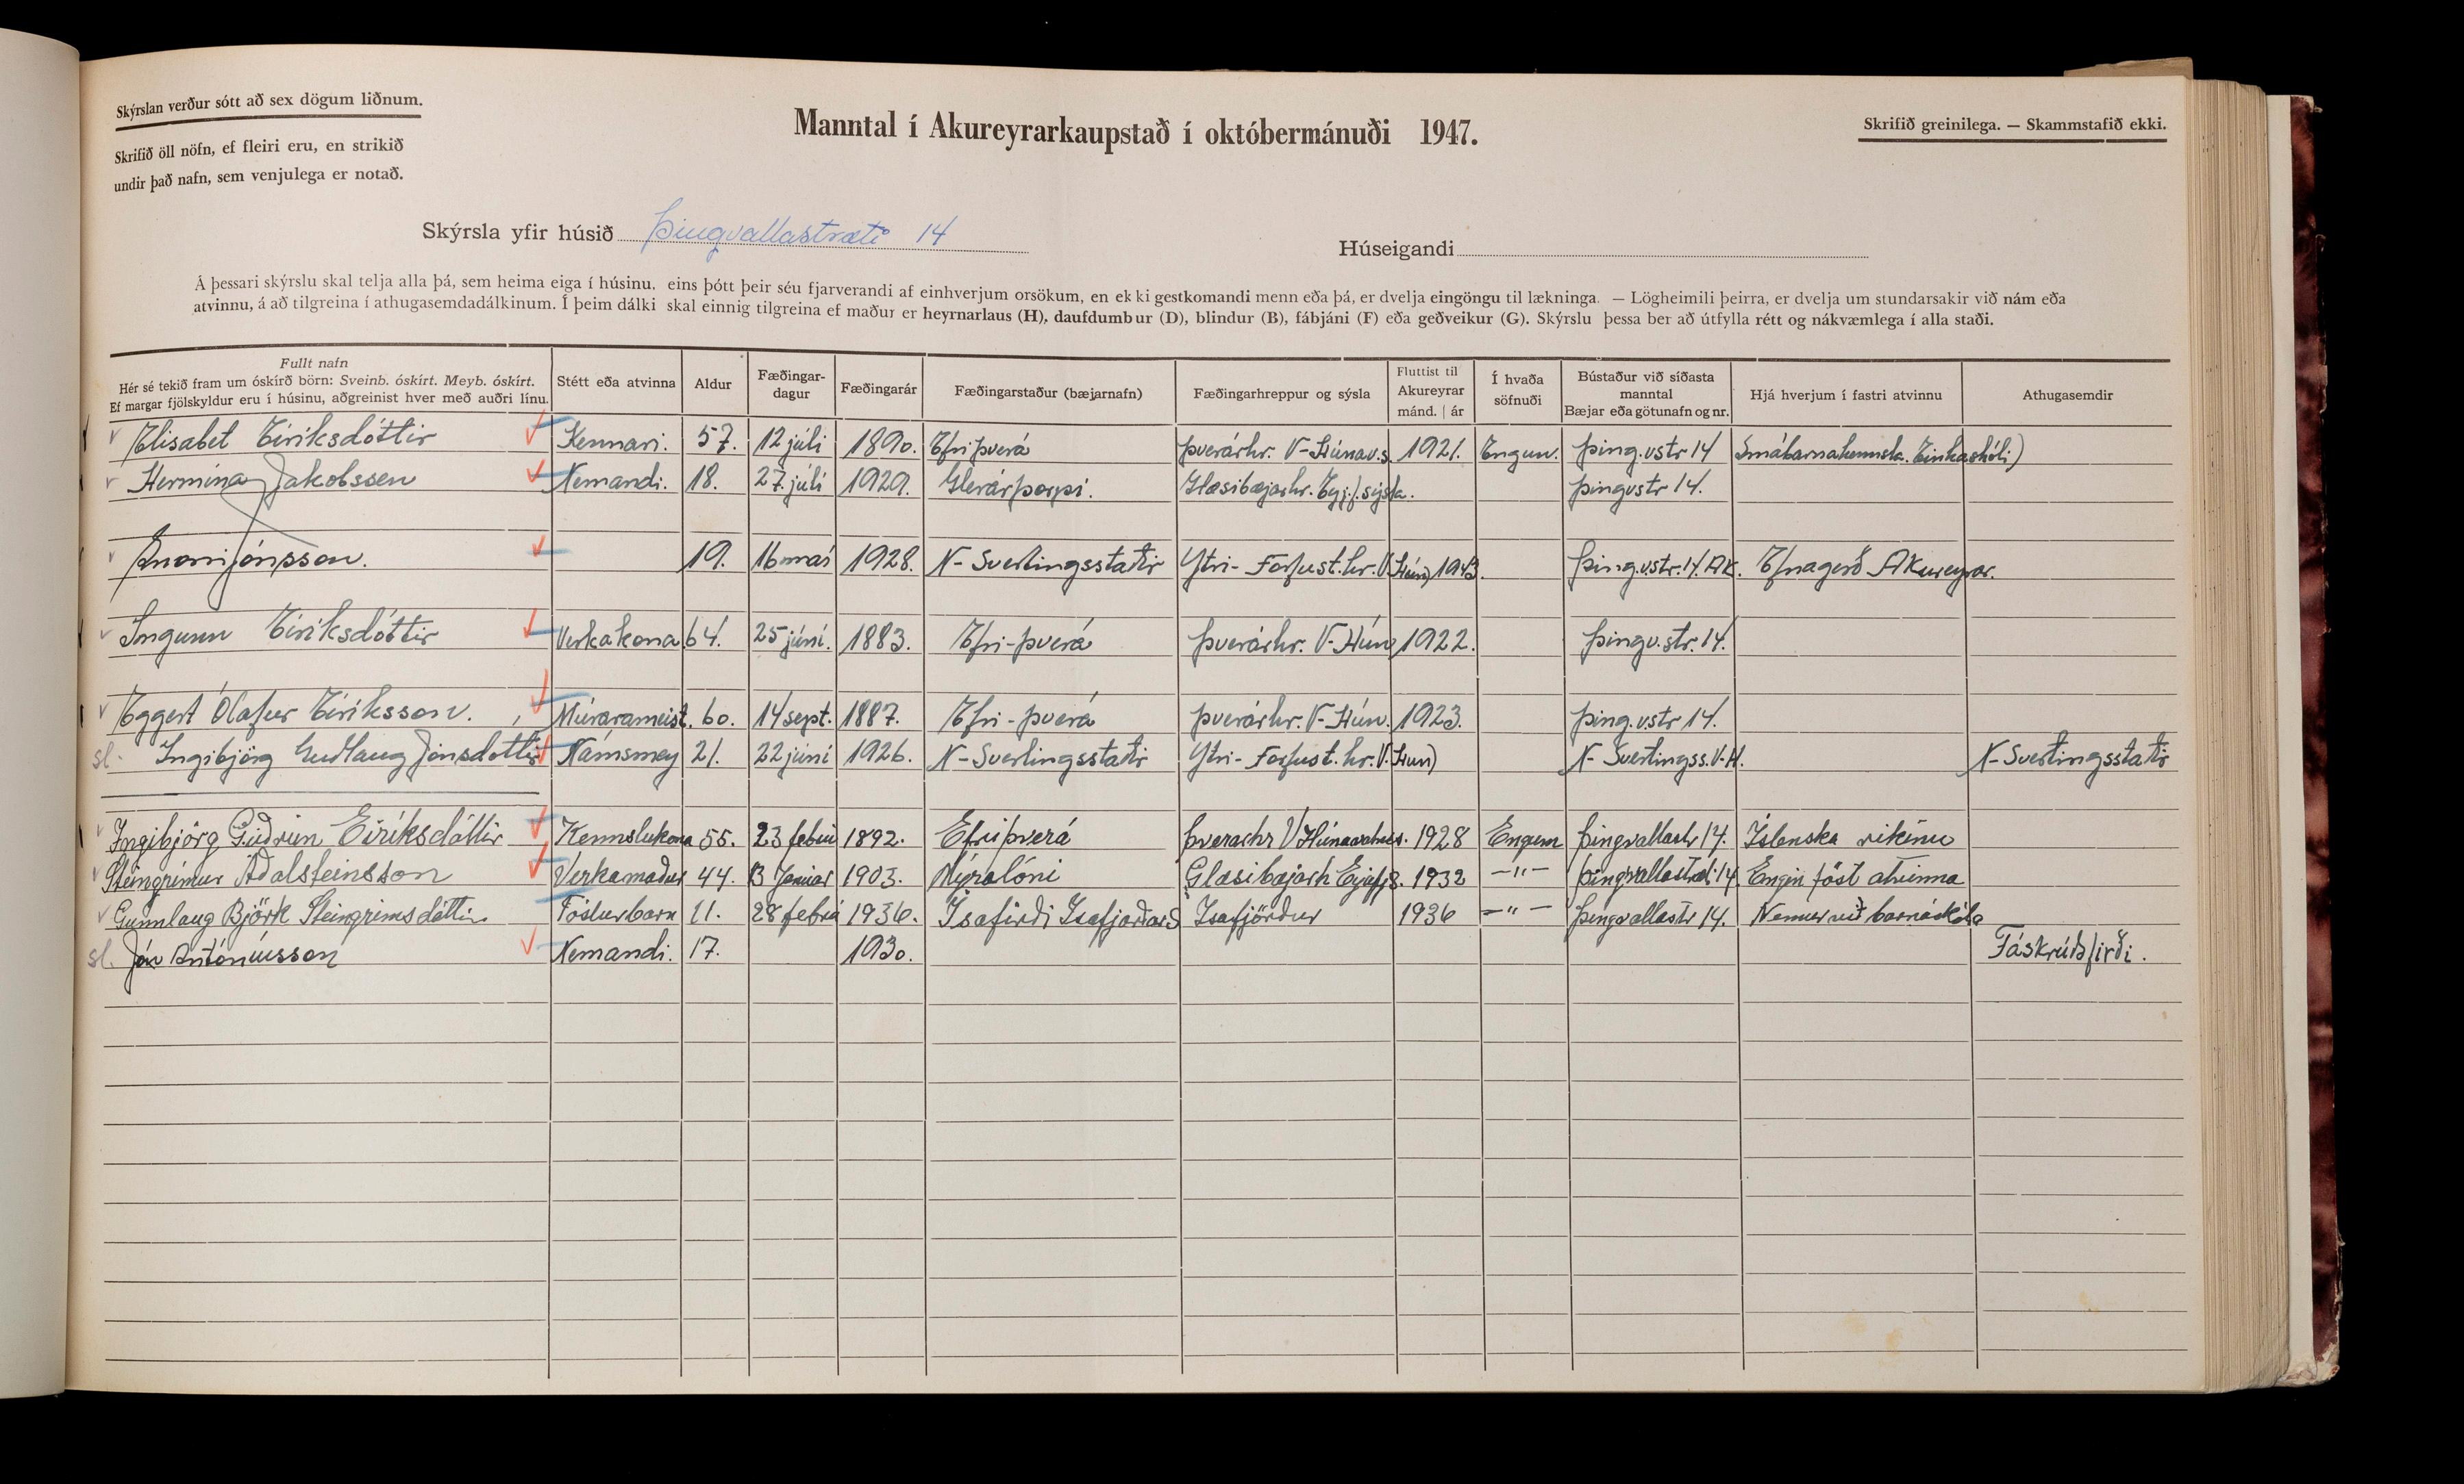 Skýrslan verður sótt að sex dögum liðnum.
Skrifið öll nöfn, ef fleiri eru, en strikið
undir það nafn, sem venjulega er notað.
Manntal í Akureyrarkaupstað í októbermánuði 1947.
Skrifið greinilega. — Skammstafið ekki.
Skýrsla yfir húsið Þingvallastræti 14
Húseigandi
Á þessari skýrslu skal telja alla þá, sem heima eiga í húsinu, eins þótt þeir séu fjarverandi af einhverjum orsökum, en ekki gestkomandi menn eða þá, er dvelja eingöngu til lækninga. — Lögheimili þeirra, er dvelja um stundarsakir við nám eða
atvinnu, á að tilgreina í athugasemdadálkinum. Í þeim dálki skal einnig tilgreina ef maður er heyrnarlaus (H), daufdumbur (D), blindur (B), fábjáni (F) eða geðveikur (G). Skýrslu þessa ber að útfylla rétt og nákvæmlega í alla staði.
Fullt nafn
Hér sé tekið fram um óskírð börn: Sveinb. óskírt. Meyb. óskírt.
Ef margar fjölskyldur eru í húsinu, aðgreinist hver með auðri línu.
Stétt eða atvinna
Aldur
Fæðingar-
dagur
Fæðingarár
Fæðingarstaður (bæjarnafn)
Fæðingarhreppur og sýsla
Fluttist til
Akureyrar
mánd. | ár
Í hvaða
söfnuði
Bústaður við síðasta
manntal
Bæjar eða götunafn og nr.
Hjá hverjum í fastri atvinnu
Athugasemdir
Elisabet Eiríksdóttir Kennari. 57. 12 júlí 1890. Efri þverá Þverárhr. V-Húnav.s. 1921. Engum. Þing.vstr 14 Smábarnakennsla. Einkaskóli)
Hermína Jakobssen Nemandi. 18. 27. júlí 1929. Glerárþorpi. Glæsibæjarhr. Eyj.f.sýsla. Þingvstr 14.
Snorri Jónsson. 19. 16 maí 1928. N-Svertingsstaðir Ytri-Torfust.hr. V.Hún) 1943. Þing.vstr. 14. Ak. Efnagerð Akureyrar.
Ingunn Eiríksdóttir Verkakona 64. 25 júní. 1883. Efri-þverá Þverárhr. V-Hún 1922. Þingv.str. 14.
Eggert Ólafur Eiríksson. Múrarameist. 60. 14 sept. 1887. Efri-þverá Þverárhr. V-Hún. 1923. Þing.vstr 14.
sl. Ingibjörg Guðlaug Jónsdóttir Námsmey 21. 22 júní 1926. N-Svertingsstaðir Ytri-Torfust.hr. V.Hún) N-Svertingss. V-H. N-Svertingsstaðir
Ingibjörg Guðrún Eiríksdóttir Kennslukona 55. 23 febrú 1892. Efriþverá Þverárhr V Húnavatnss. 1928 Engum Þingvallastr 14. Íslenska ríkinu
Steingrímur Aðalsteinsson Verkamaður 44. 13 Janúar 1903. Mýralóni Glæsibæjarh Eyjafjs. 1932 —"— Þingvallastræti 14. Engin föst atvinna
Gunnlaug Björk Steingrímsdóttir Fósturbarn 11. 28 febrú 1936. Ísafirði Ísafjarðars Ísafjörður 1936 —"— Þingvallastr 14. Nemur við barnaskóla
sl. Jón Antóníusson Nemandi. 17. 1930. Fáskrúðsfirði.